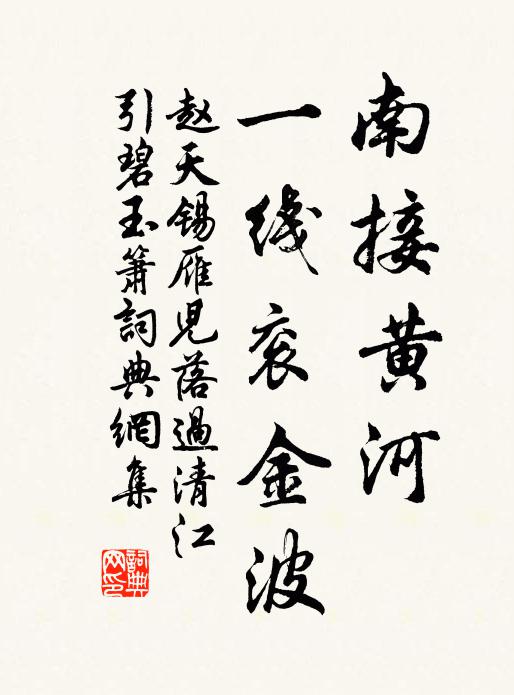 南接黄河
一线衮金波
赵天锡雁児落過清江
引碧玉箫詞典網集
詞典
网印